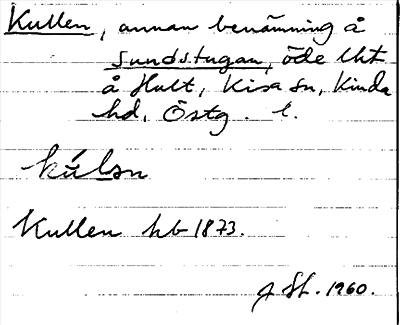 Kullen, annan benämning å
Sundstugan, öde lht
å Hult, Kisa sn, Kinda
hd, Östg. l.
kúlən
Kullen hb 1873.
1960.